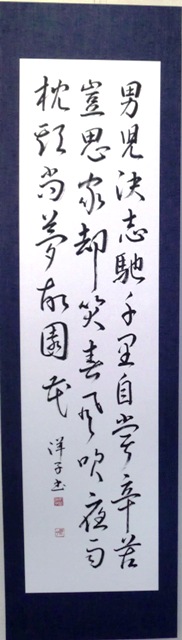 男児決志馳千里自甞辛苦
豈思家却笑春風吹夜雨
枕頭尚夢故園花
洋子書